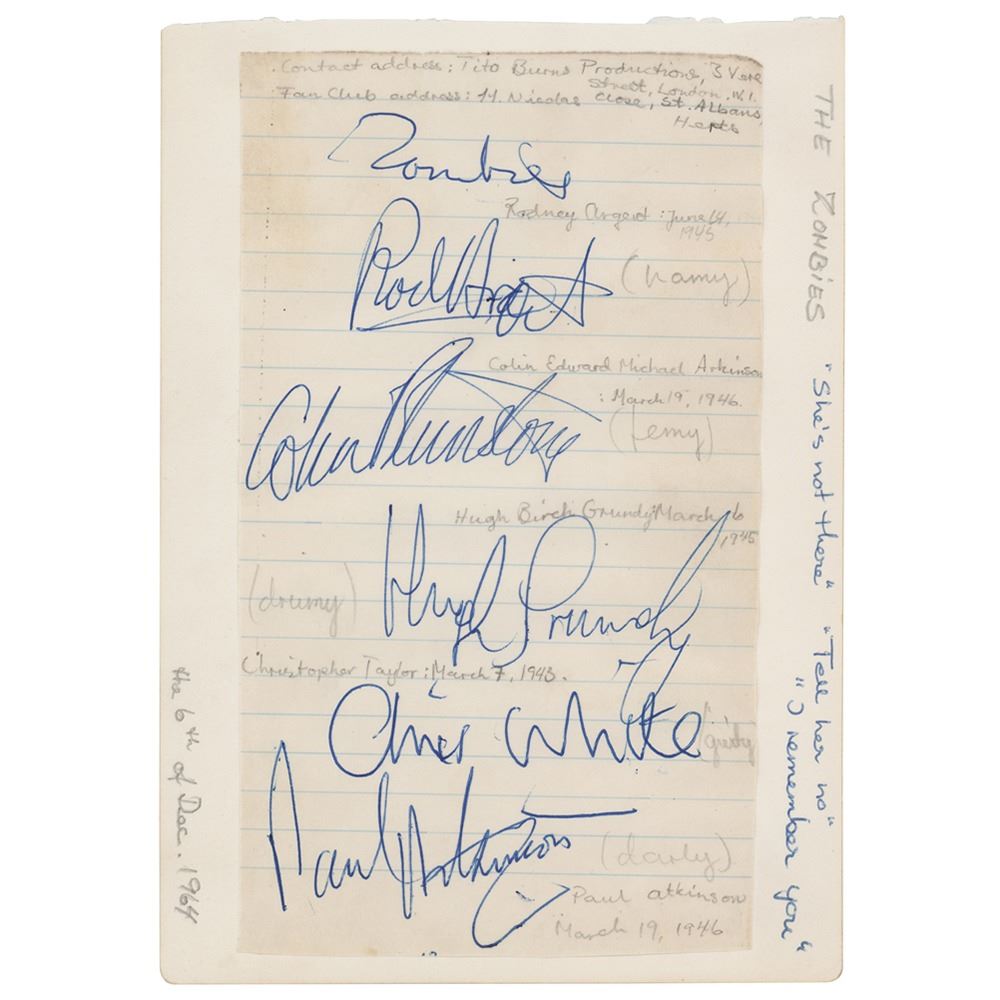 Contact address: Tito Burns Productions, 3 Vere
Street, London, W.1.
Fan Club address: 14. Nicolas Close, St. Albans,
Herts
Zombies
Rodney Argent: June 14,
1945
Rod Argent
(namy)
Colin Edward Michael Arkinson
: March 19, 1946.
Colin Blunstone
(femy)
Hugh Birch Grundy: March 6
1945
Hugh Grundy
(drumy)
Christopher Taylor: March 7, 1943.
Chris White
Paul Atkinson
(darly)
Paul atkinson
March 19, 1946
THE ZOMBIES "She's not there" "Tell her no"
"I remember you"
the 6th of Dec. 1964